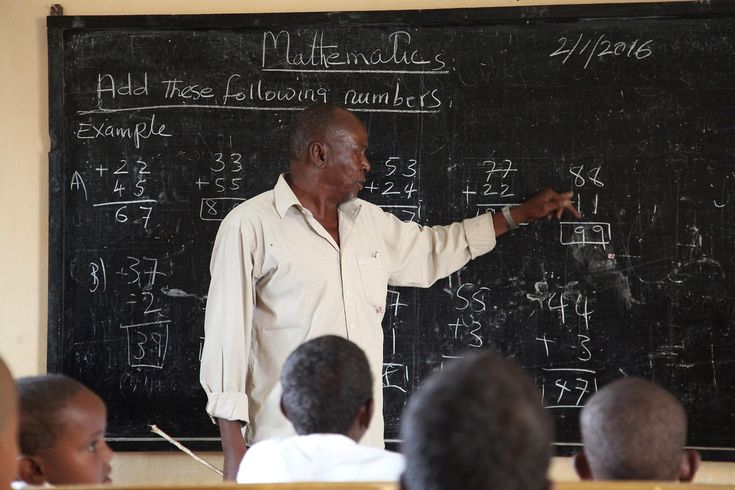 Mathematics 2/1/2016
Add These following numbers.
Example
A) +22 33 53 77 88
45 +55 +24 +22 11
67 8 99
B) 37 55 44
+2 +3 +3
39 47